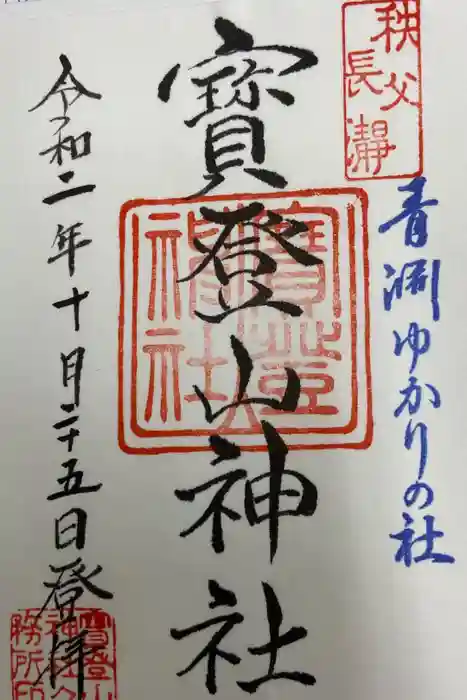 秩父
長瀞
青淵ゆかりの社
寳登山神社
寳登山
神社
令和二年十月二十五日登拝
寳登山
神社
務所印